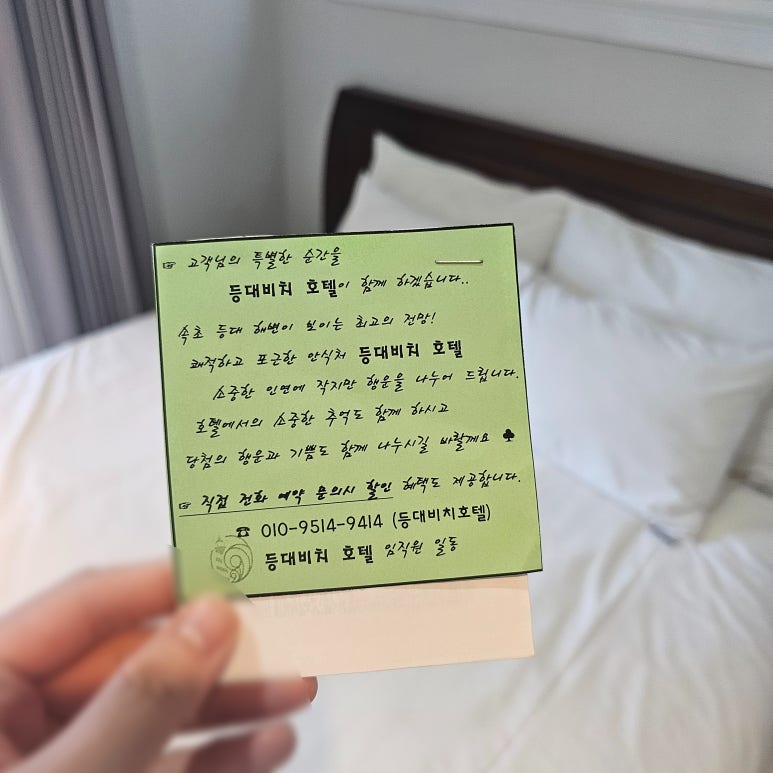 ☞ 고객님의 특별한 순간을
등대비치 호텔이 함께 하겠습니다..
속초 등대 해변이 보이는 최고의 전망!
쾌적하고 포근한 안식처 등대비치 호텔
소중한 인연에 작지만 행운을 나누어 드립니다.
호텔에서의 소중한 추억도 함께 하시고
당첨의 행운과 기쁨도 함께 나누시길 바랄께요 ♣
☞ 직접 전화 예약 문의시 할인 혜택도 제공합니다.
☎ 010-9514-9414 (등대비치호텔)
등대비치 호텔 임직원 일동